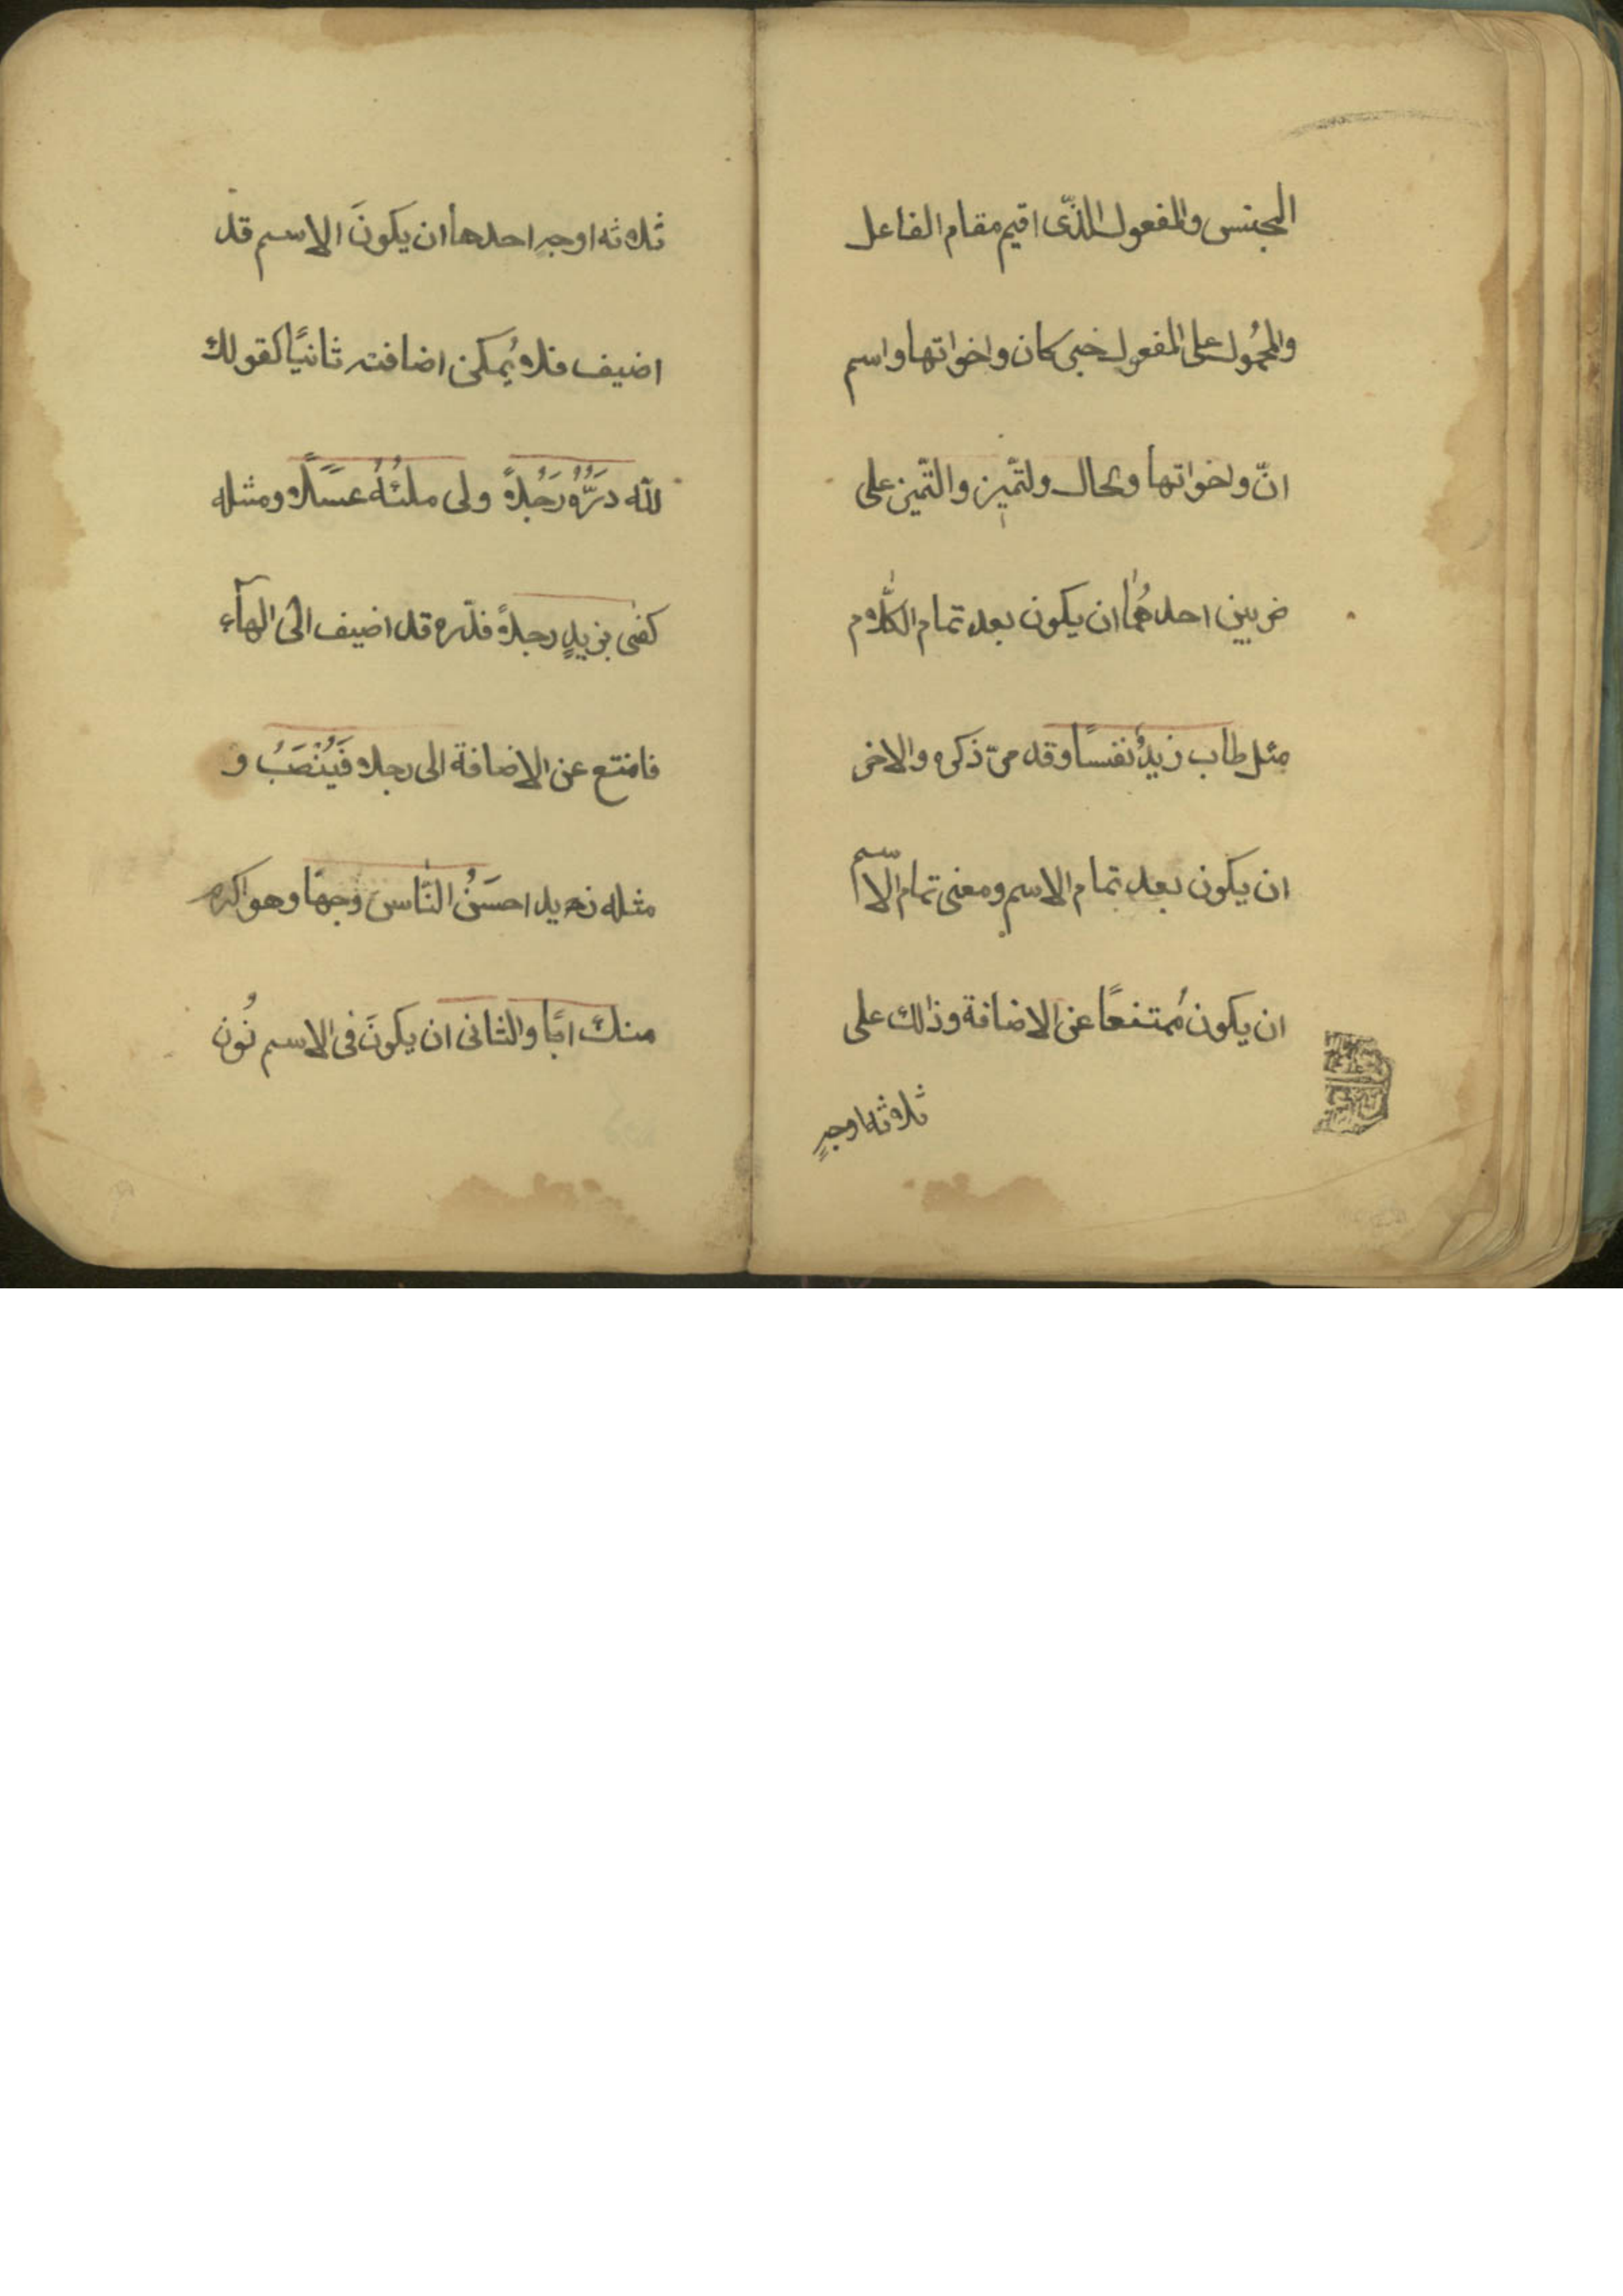 الجنس والمفعول الذّى اقيم مقام الفاعل
والمحمُول على المفعول خبر كان واخواتها واسم
انّ واخواتها والحال ولتّميز والتّميز على
ضربين احدهُما ان يكون بعد تمام الكلام
مثل طاب زيدٌ نفسًا وقد مرّ ذكره والاخر
ان يكون بعد تمام الاسم ومعنى تمام الاسم
ان يكون مُمتنعًا عن الاضافة وذالك على
ثلاثه اوجهٍ
ثلاثه اوجهٍ احدها ان يكونَ الاسم قد
اضيف فلا يُمكن اضافته ثانيًا كقولك
لله دَرُّهُ رَجُلاً ولى ملئُهُ عسَلاً ومثله
كفى بزيدٍ رجلاً فدّره قد اضيف الى الهآء
فامتنع عن الاضافة الى رجلا فَيُنْصَبُ و
مثله زيد احسَنُ النّاس وَجهًا وهو اكبر
منك ابًا والثانى ان يكونَ فى الاسم نُون